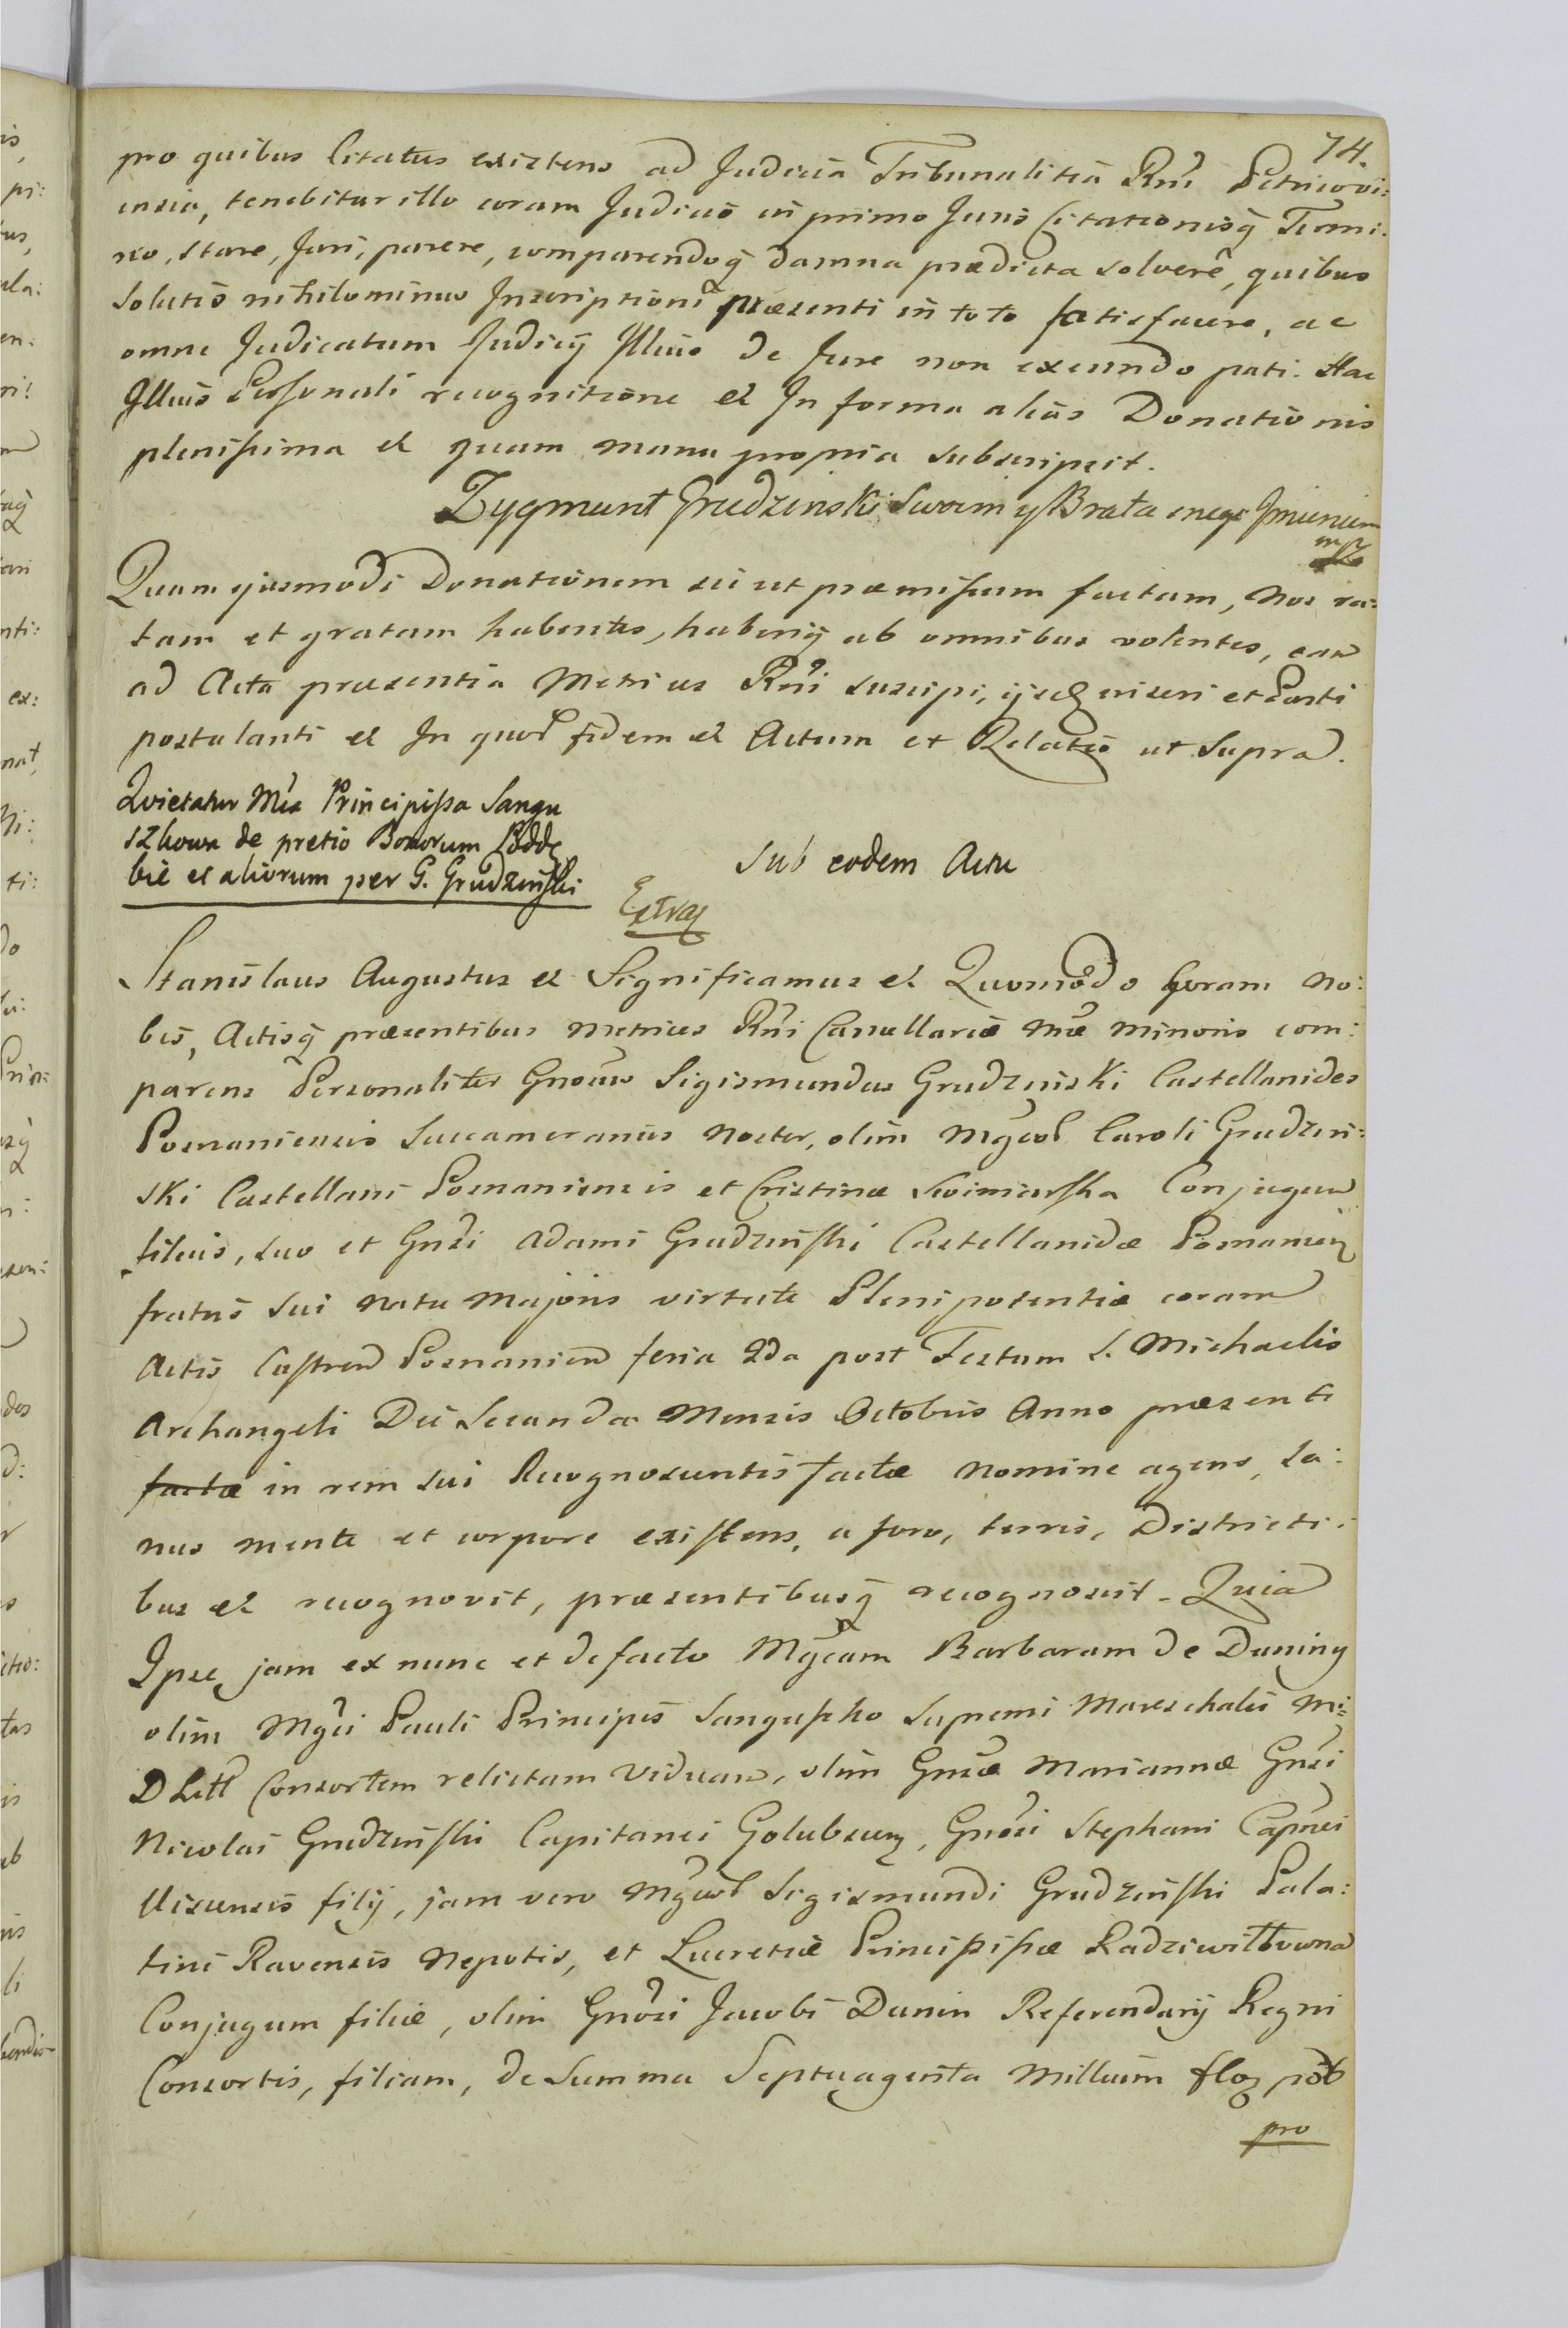 74.
pro quibus Citatus existens ad Judicia Tribunalitia Rni Petricovi:
ensia, tenebitur illo coram Judicio in primo Juris Citationisq Termi:
no, stare, Juri, parere, comparendoq damna prædicta solvere, quibus
solutis nihilominus Inscriptioni præsenti in toto satisfacere, ac
omne Judicatum Judicij Illius de Jure non exeundo pati. Hac
Illius Personali recognitione et In forma alias Donationis
plenissima et quam manu propria subscripsit.
Zygmunt Grudzinski Swoim y Brata mego Jmieniem
mp
Quam ejusmodi Donationem sic ut præmissum factam, Nos ra:
tam et gratam habentes, haberiq ab omnibus volentes, eam
ad Acta præsentia Metrices Rni suscipi, ijsq inseri et Parti
postulanti et In quor fidem et Actum et Relatio ut Supra.
Qvietatur Mca Principissa Sangu
szkowa de pretio Bonorum Poddę
bie et aliorum per G. Grudzinski
Sub eodem Actu
Extrad
Stanislaus Augustus et Significamus et Quomodo Coram No:
bis, Actisq præsentibus Metrices Rni Cancellariæ Mæ Minoris com:
parens Personaliter Gnosus Sigismundus Grudzinski Castellanides
Posnaniensis Succamerarius Noster, olim Mgcor Caroli Grudzin:
ski Castellani Posnaniensis et Cristinæ Swiniarska Conjugum
filius, suo et Gnsi Adami Grudzinski Castellanidæ Posnanien
fratris sui Natu Majoris virtute Plenipotentiæ coram
Actis Castren Posnanien feria 2da post Festum S. Michaelis
Archangeli Die Secunda Mensis Octobris Anno præsenti
factæ in rem sui Recognoscentis factæ Nomine agens, sa:
nus mente et corpore existens, a foro, terris, Districti:
bus et recognovit, præsentibusq recognoscit. Quia
Ipse jam ex nunc et de facto Mgcam Barbaram de Duniny
olim Mgci Pauli Principis Sanguszko Supremi Mareschalci M:
D Litt Consortem relictam Viduam, olim Gnsæ Mariannæ Gnsi
Nicolai Grudzinski Capitanei Golubscen, Gnosi Stephani Capnei
Uscensis filij, jam vero Mgcor Sigismundi Grudzinski Pala:
tini Ravensis Nepotis, et Lucretiæ Principissæ Radziwiłłowna
Conjugum filiæ, olim Gnosi Jacobi Dunin Referendarij Regni
Consortis, filiam, de Summa Septuaginta Millium flor pol
pro